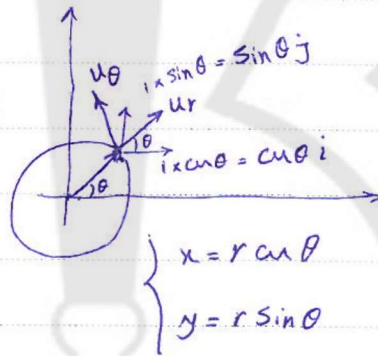 uθ
ı × sinθ = sinθ j
ur
θ
ı × cosθ = cosθ i
θ
x = r cosθ
y = r sinθ